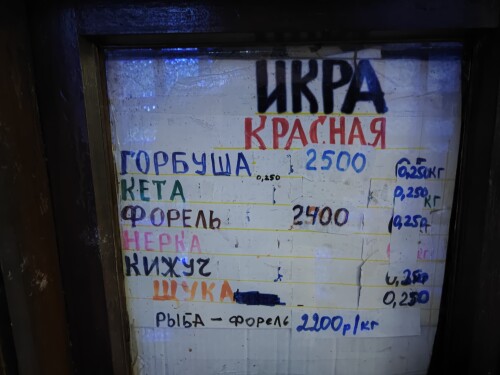 ИКРА
КРАСНАЯ
ГОРБУША 0,250 2500 0,250кг
КЕТА 0,250 кг
ФОРЕЛЬ 2400 0,250
НЕРКА кг
КИЖУЧ 0,250
ЩУКА 0,250
РЫБА - ФОРЕЛЬ 2200р/кг